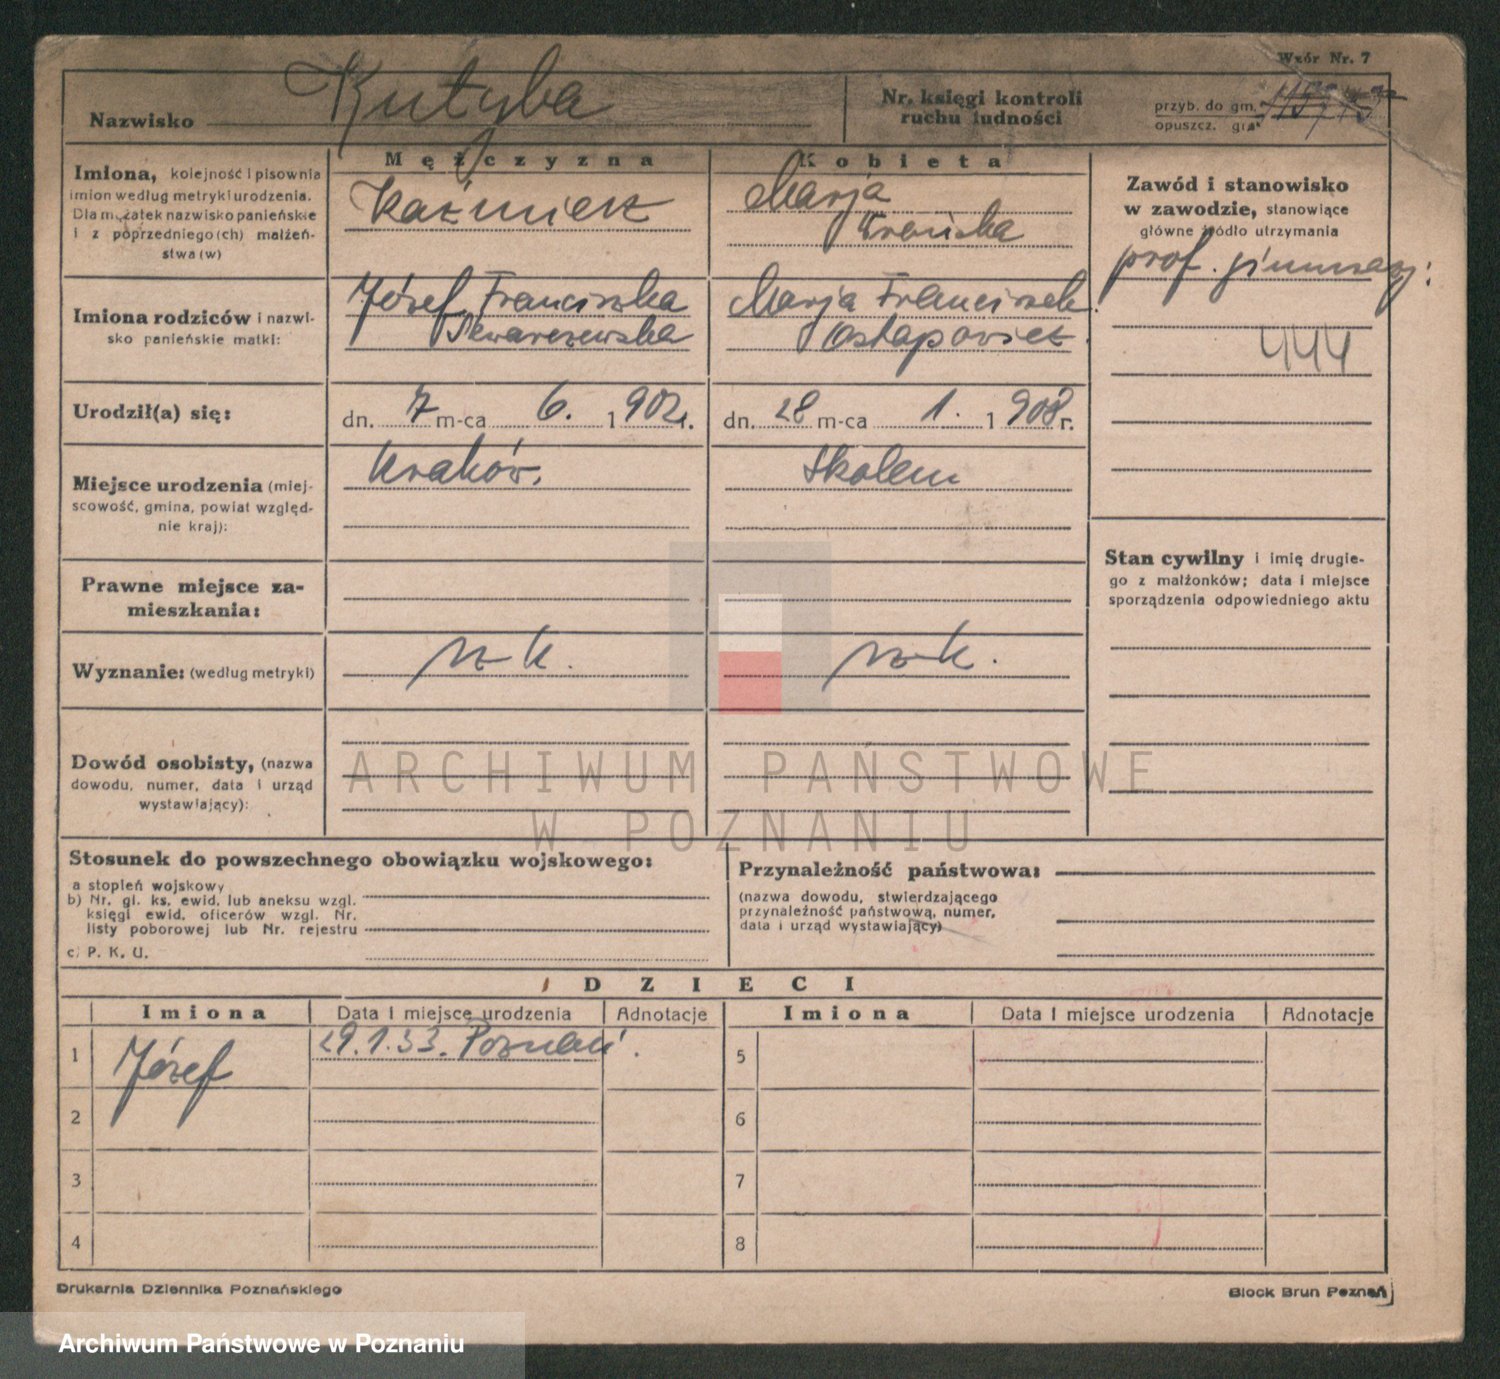 Wzór Nr. 7
Nazwisko Kutyba
Nr. księgi kontroli
ruchu ludności
przyb. do gm.
opuszcz. gm.
Mężczyzna
Kobieta
Imiona, kolejność i pisownia
imion według metryki urodzenia.
Dla mężatek nazwisko panieńskie
i z poprzedniego(ch) małżeń-
stwa(w)
Kaźmierz
Marja
Zawód i stanowisko
w zawodzie, stanowiące
główne źródło utrzymania
prof. gimnazj:
444
Imiona rodziców i nazwi-
sko panieńskie matki:
Józef Franciszka
Marja Franciszek
Ostapowicz
Urodził(a) się:
dn. 7 m-ca 6. 1902 r.
dn. 28 m-ca 1. 1908 r.
Miejsce urodzenia (miej-
scowość, gmina, powiat względ-
nie kraj):
Kraków.
Skolem
Prawne miejsce za-
mieszkania:
Stan cywilny i imię drugie-
go z małżonków; data i miejsce
sporządzenia odpowiedniego aktu
Wyznanie: (według metryki)
rz-k.
rz-k.
Dowód osobisty, (nazwa
dowodu, numer, data i urząd
wystawiający):
ARCHIWUM PAŃSTWOWE
W POZNANIU
Stosunek do powszechnego obowiązku wojskowego:
a stopień wojskowy
b) Nr. gl. ks. ewid. lub aneksu wzgl.
księgi ewid. oficerów wzgl. Nr.
listy poborowej lub Nr. rejestru
c) P. K. U.
Przynależność państwowa:
(nazwa dowodu, stwierdzającego
przynależność państwową, numer,
data i urząd wystawiający)
DZIECI
Imiona
Data i miejsce urodzenia
Adnotacje
Imiona
Data i miejsce urodzenia
Adnotacje
1 Józef 29.1.33. Poznań.
5
2
6
3
7
4
8
Drukarnia Dziennika Poznańskiego
Block Brun Poznań
Archiwum Państwowe w Poznaniu